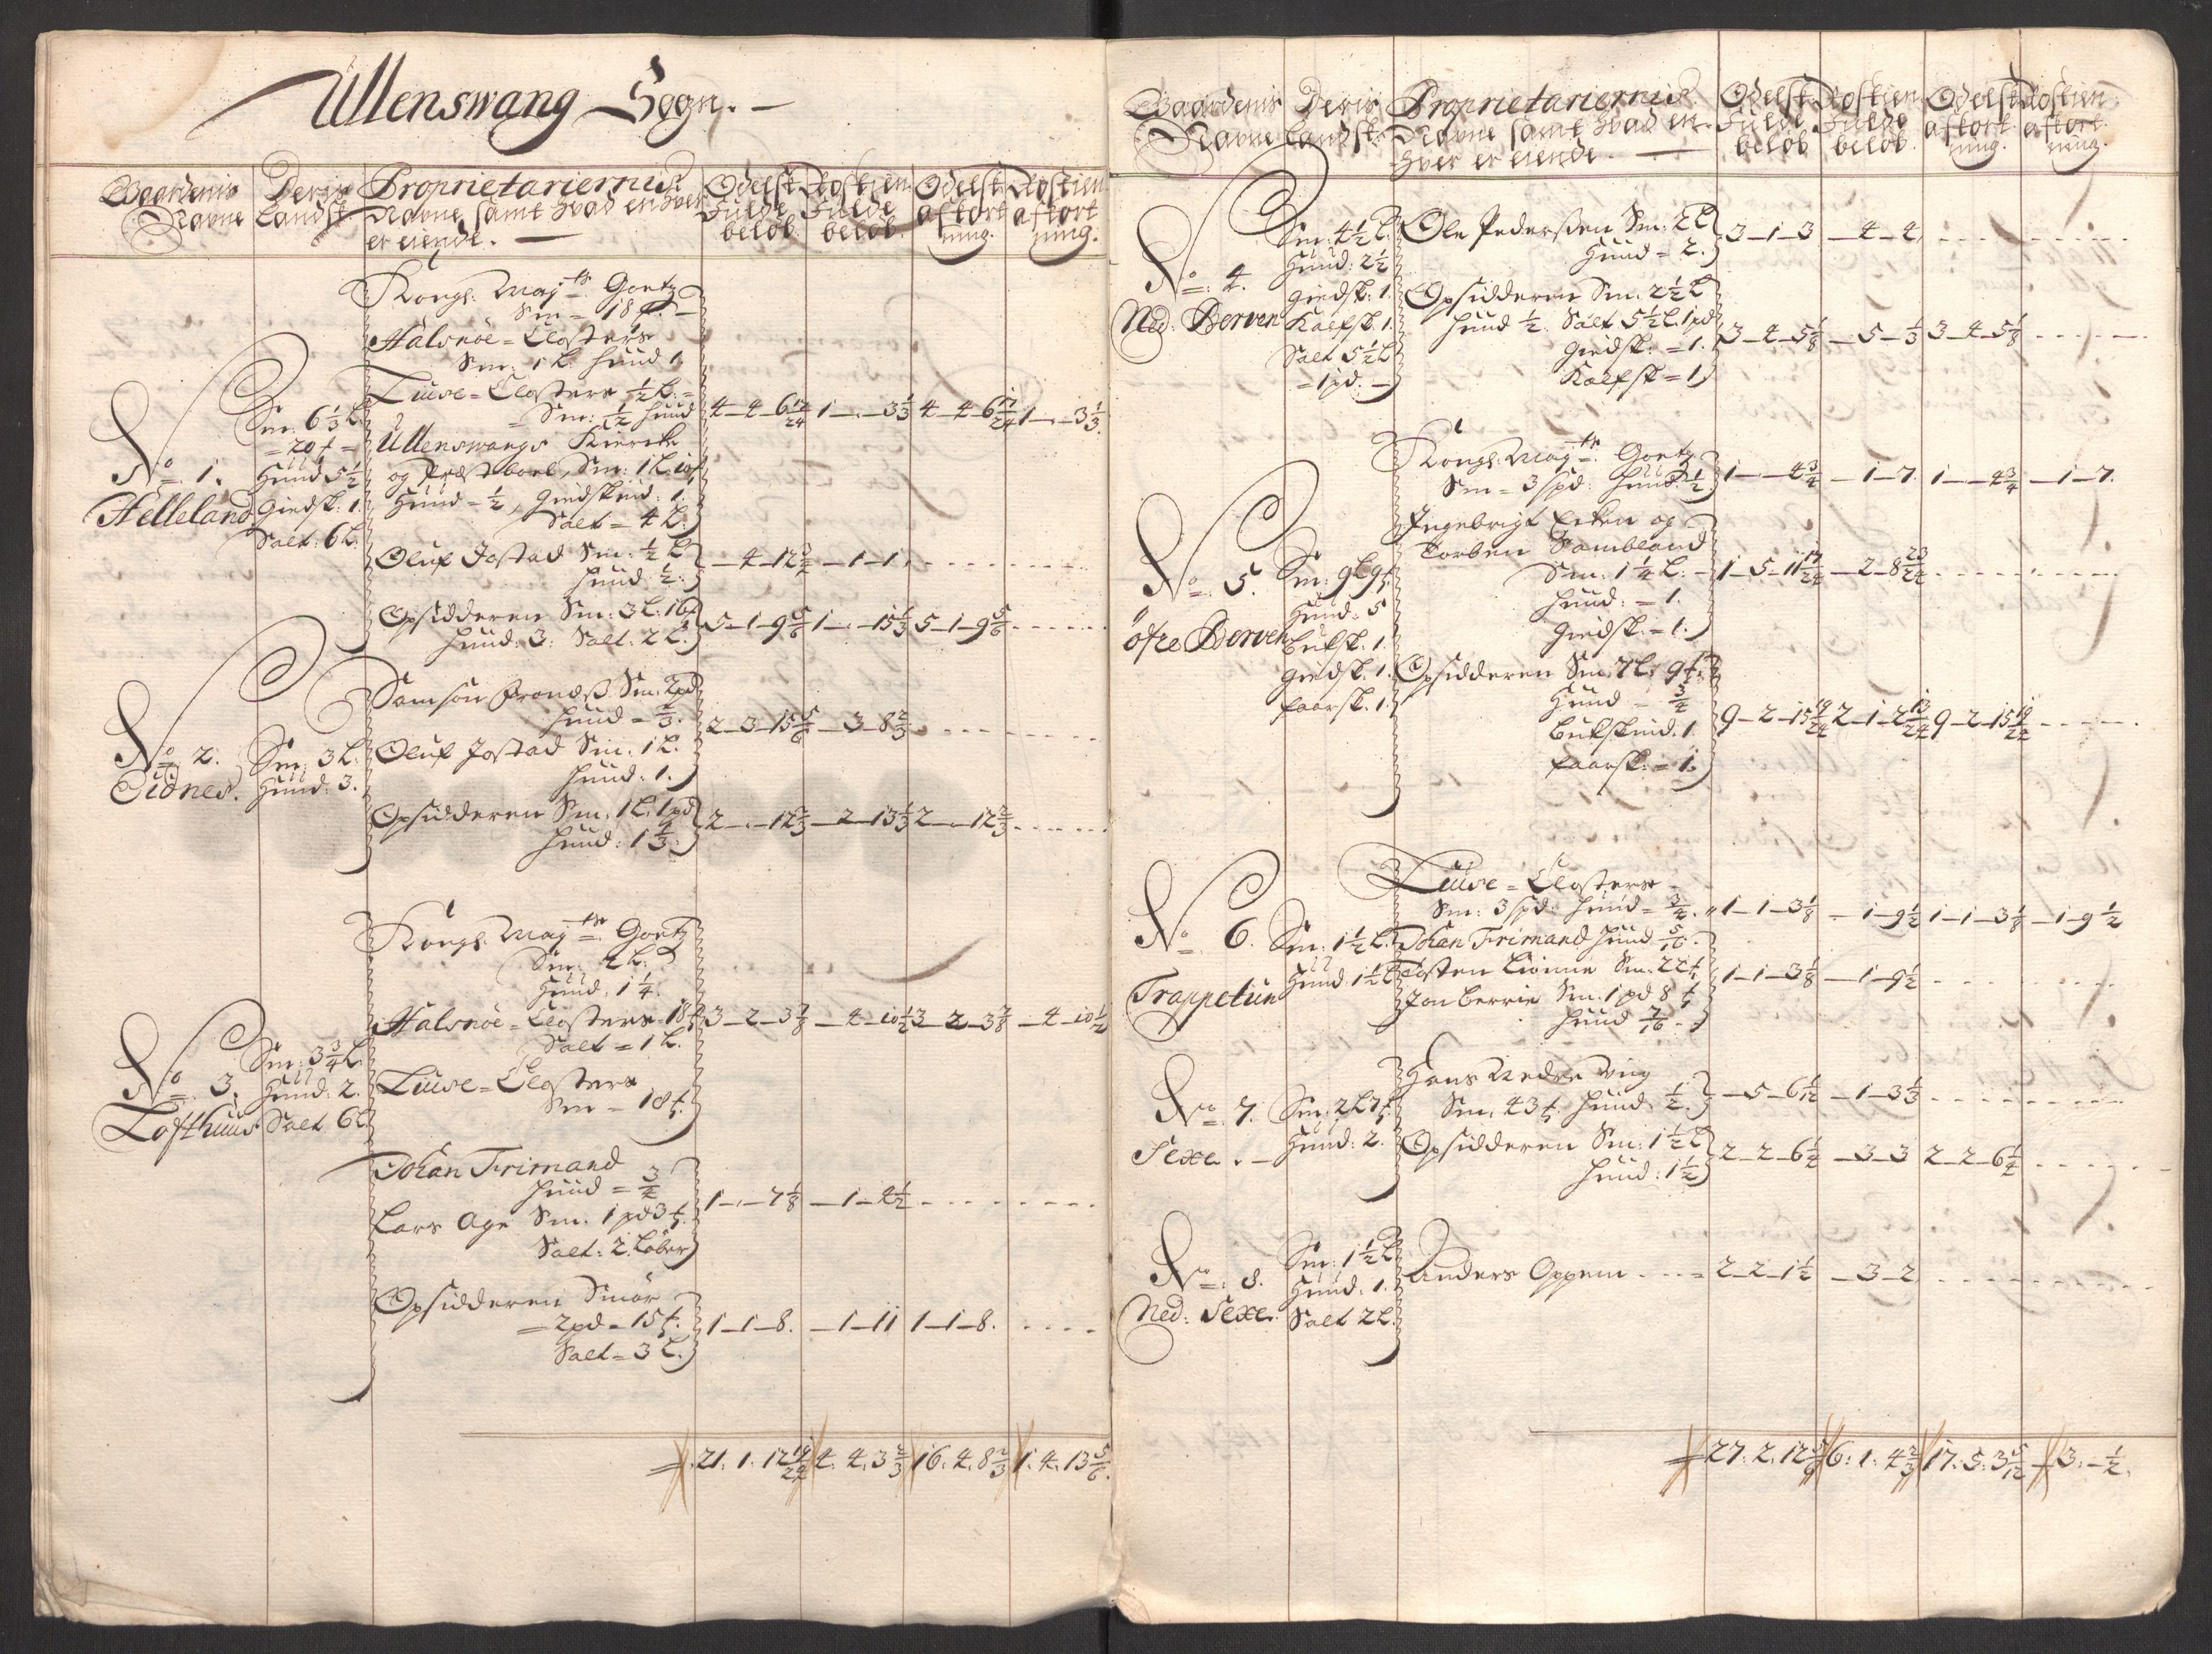 Ullenswang Sogn.
Gaardenis Navne
Deris Landsk:
Proprietariernis Navne samt hvad en hver er eiende.
Odelsk: Fulde beløb.
Rostien: Fulde beløb.
Odelsk: aftort ning.
Rostien aftort ning.
No 1. Helleland
Sm: 6 1/3 L.
= 20 f =
Huud 5 1/2
Giedsk: 1.
Salt: 6 L.
Kongl: Mayts: Goetz
Sm = 18 f. —
Halsnöe = Closters
Sm: 1 L. huud 1.
Luuse = Closters 1/2 L: =
= Sm: 1/2 huud
Ullenswangs Kiercke
og Præstboel, Sm: 1 L. 10 f
Huud = 1/2, Giedskind: 1.
Salt = 4 L.
4 _ 4 _ 6 17/24 1 _ . _ 3 1/3 4 _ 4 _ 6 17/24 1 _ . _ 3 1/3.
Oluf Jostad Sm: 1/2 L
huud: 1/2:
_ 4 _ 12 _ 1 _ 1.
Opsidderen Sm: 3 L. 16 f
huud: 3: Salt: 2 L.
5 _ 1 _ 9 5/6 1 _ . _ 15 1/3 5 _ 1 _ 9 5/6
No 2. Eidnes.
Sm: 3 L.
Huud: 3.
Samson Sm: 2 pd
huud = 2/3.
Oluf Jostad Sm. 1 L.
huud: 1.
2 _ 3 _ 15 5/6 _ 3 _ 8 2/3
Opsidderen Sm. 1 L. 1 pd
huud: 1 1/3.
2 _ . _ 12 2/3 _ 2 _ 13 1/3 2 _ . _ 12 2/3
No 3. Lofthuus
Sm: 3 3/4 L.
Huud: 2.
Salt 6 L
Kongl: Mayts: Goetz
Sm: 2 L.
Huud. 1 1/4.
Halsnöe = Closters 18 f
Salt = 1 L.
Luuse = Closters
Sm = 18 f.
3 _ 2 _ 3 7/8 _ 4 _ 10 1/2 3 _ 2 _ 3 7/8 _ 4 _ 10 1/2
Johan Frimand
huud = 3/4
Lars Age Sm. 1 pd 3 f.
Salt: 2 Löber
1 _ . _ 7 1/8 _ 1 _ 4 1/2
Opsidderen Smör
= 2 pd = 15 f.
Salt = 3 L.
1 _ 1 _ 8. _ 1 _ 11 1 _ 1 _ 8.
= 21. 1. 12 19/24 4. 4. 3 2/3 16. 4. 8 2/3 1. 4. 13 5/6.
Gaardenis Navne
Deris Landsk:
Proprietariernis Navne samt hvad en hver er eiende.
Odelsk Fulde beløb
Rostien Fulde beløb.
Odelsk aftort ning.
Rostien aftort ning.
No 4. Ned: Berven
Sm: 4 1/2 L.
Huud: 2 1/2
Giedsk: 1.
Kalfsk. 1.
Salt 5 1/2 L
= 1 pd. —
Ole Pedersen Sm: 2 L
Huud = 2.
3 _ 1 _ 3 _ 4 _ 4
Opsidderen Sm. 2 1/2 L
huud 1/2. Salt 5 1/2 L. 1 pd
Giedsk: = 1.
Kalfsk = 1
3 _ 4 _ 5 1/8 _ 5 _ 1/3 3 _ 4 _ 5 1/8
No 5. öfre Berven
Sm: 9 L 9 f.
Huud: 5
Buksk. 1.
Giedsk. 1.
faarsk. 1.
Kongl: Mayts: Goetz
Sm = 3 spd: huud: 1/2
1 _ . _ 4 3/4 _ 1 _ 7. 1 _ . _ 4 3/4 _ 1 _ 7.
Ingebrigt og
Torben Sambland
Sm: 1 1/4 L: =
huud: = 1.
Giedsk. = 1.
1 _ 5 _ 11 17/24 _ 2 _ 8 23/24
Opsidderen Sm: 7 L. 9 f.
Huud = 3/2
Bukskind. 1.
faarsk: = 1.
9 _ 2 _ 15 19/24 2 _ 1 _ 2 13/24 9 _ 2 _ 15 19/24
No 6. Trappetun
Sm: 1 1/2 L.
Huud: 1 1/2
Luuse = Closters
Sm: 3 spd: huud = 3/4.
1 _ 1 _ 3 1/8 _ 1 _ 9 1/2 1 _ 1 _ 3 1/8 _ 1 _ 9 1/2
Johan Frimand huud 5/16.
Tosten Lionne Sm. 22 f.
Jon Berrie Sm. 1 pd 8 f
huud 7/16.
1 _ 1 _ 3 1/8 _ 1 _ 9 1/2
No 7. Sexe. —
Sm: 2 L 7 f.
Huud: 2.
Hans Nedre
Sm. 43 f. huud. 1/2.
_ 5 _ 6 1/12 _ 1 _ 3 1/3
Opsidderen Sm: 1 1/2 L
huud: 1 1/2
2 _ 2 _ 6 1/4 _ 3 _ 3 2 _ 2 _ 6 1/4
No 8. Ned: Sexe.
Sm: 1 1/2 L
Huud: 1.
Salt 2 L.
Anders Oppem
2 _ 2 _ 1 1/2 _ 3 _ 2
= 27. 2. 12 5/6 6. 1. 4 2/3 17. 5. 3 5/12 _ 3. _ 1/2.